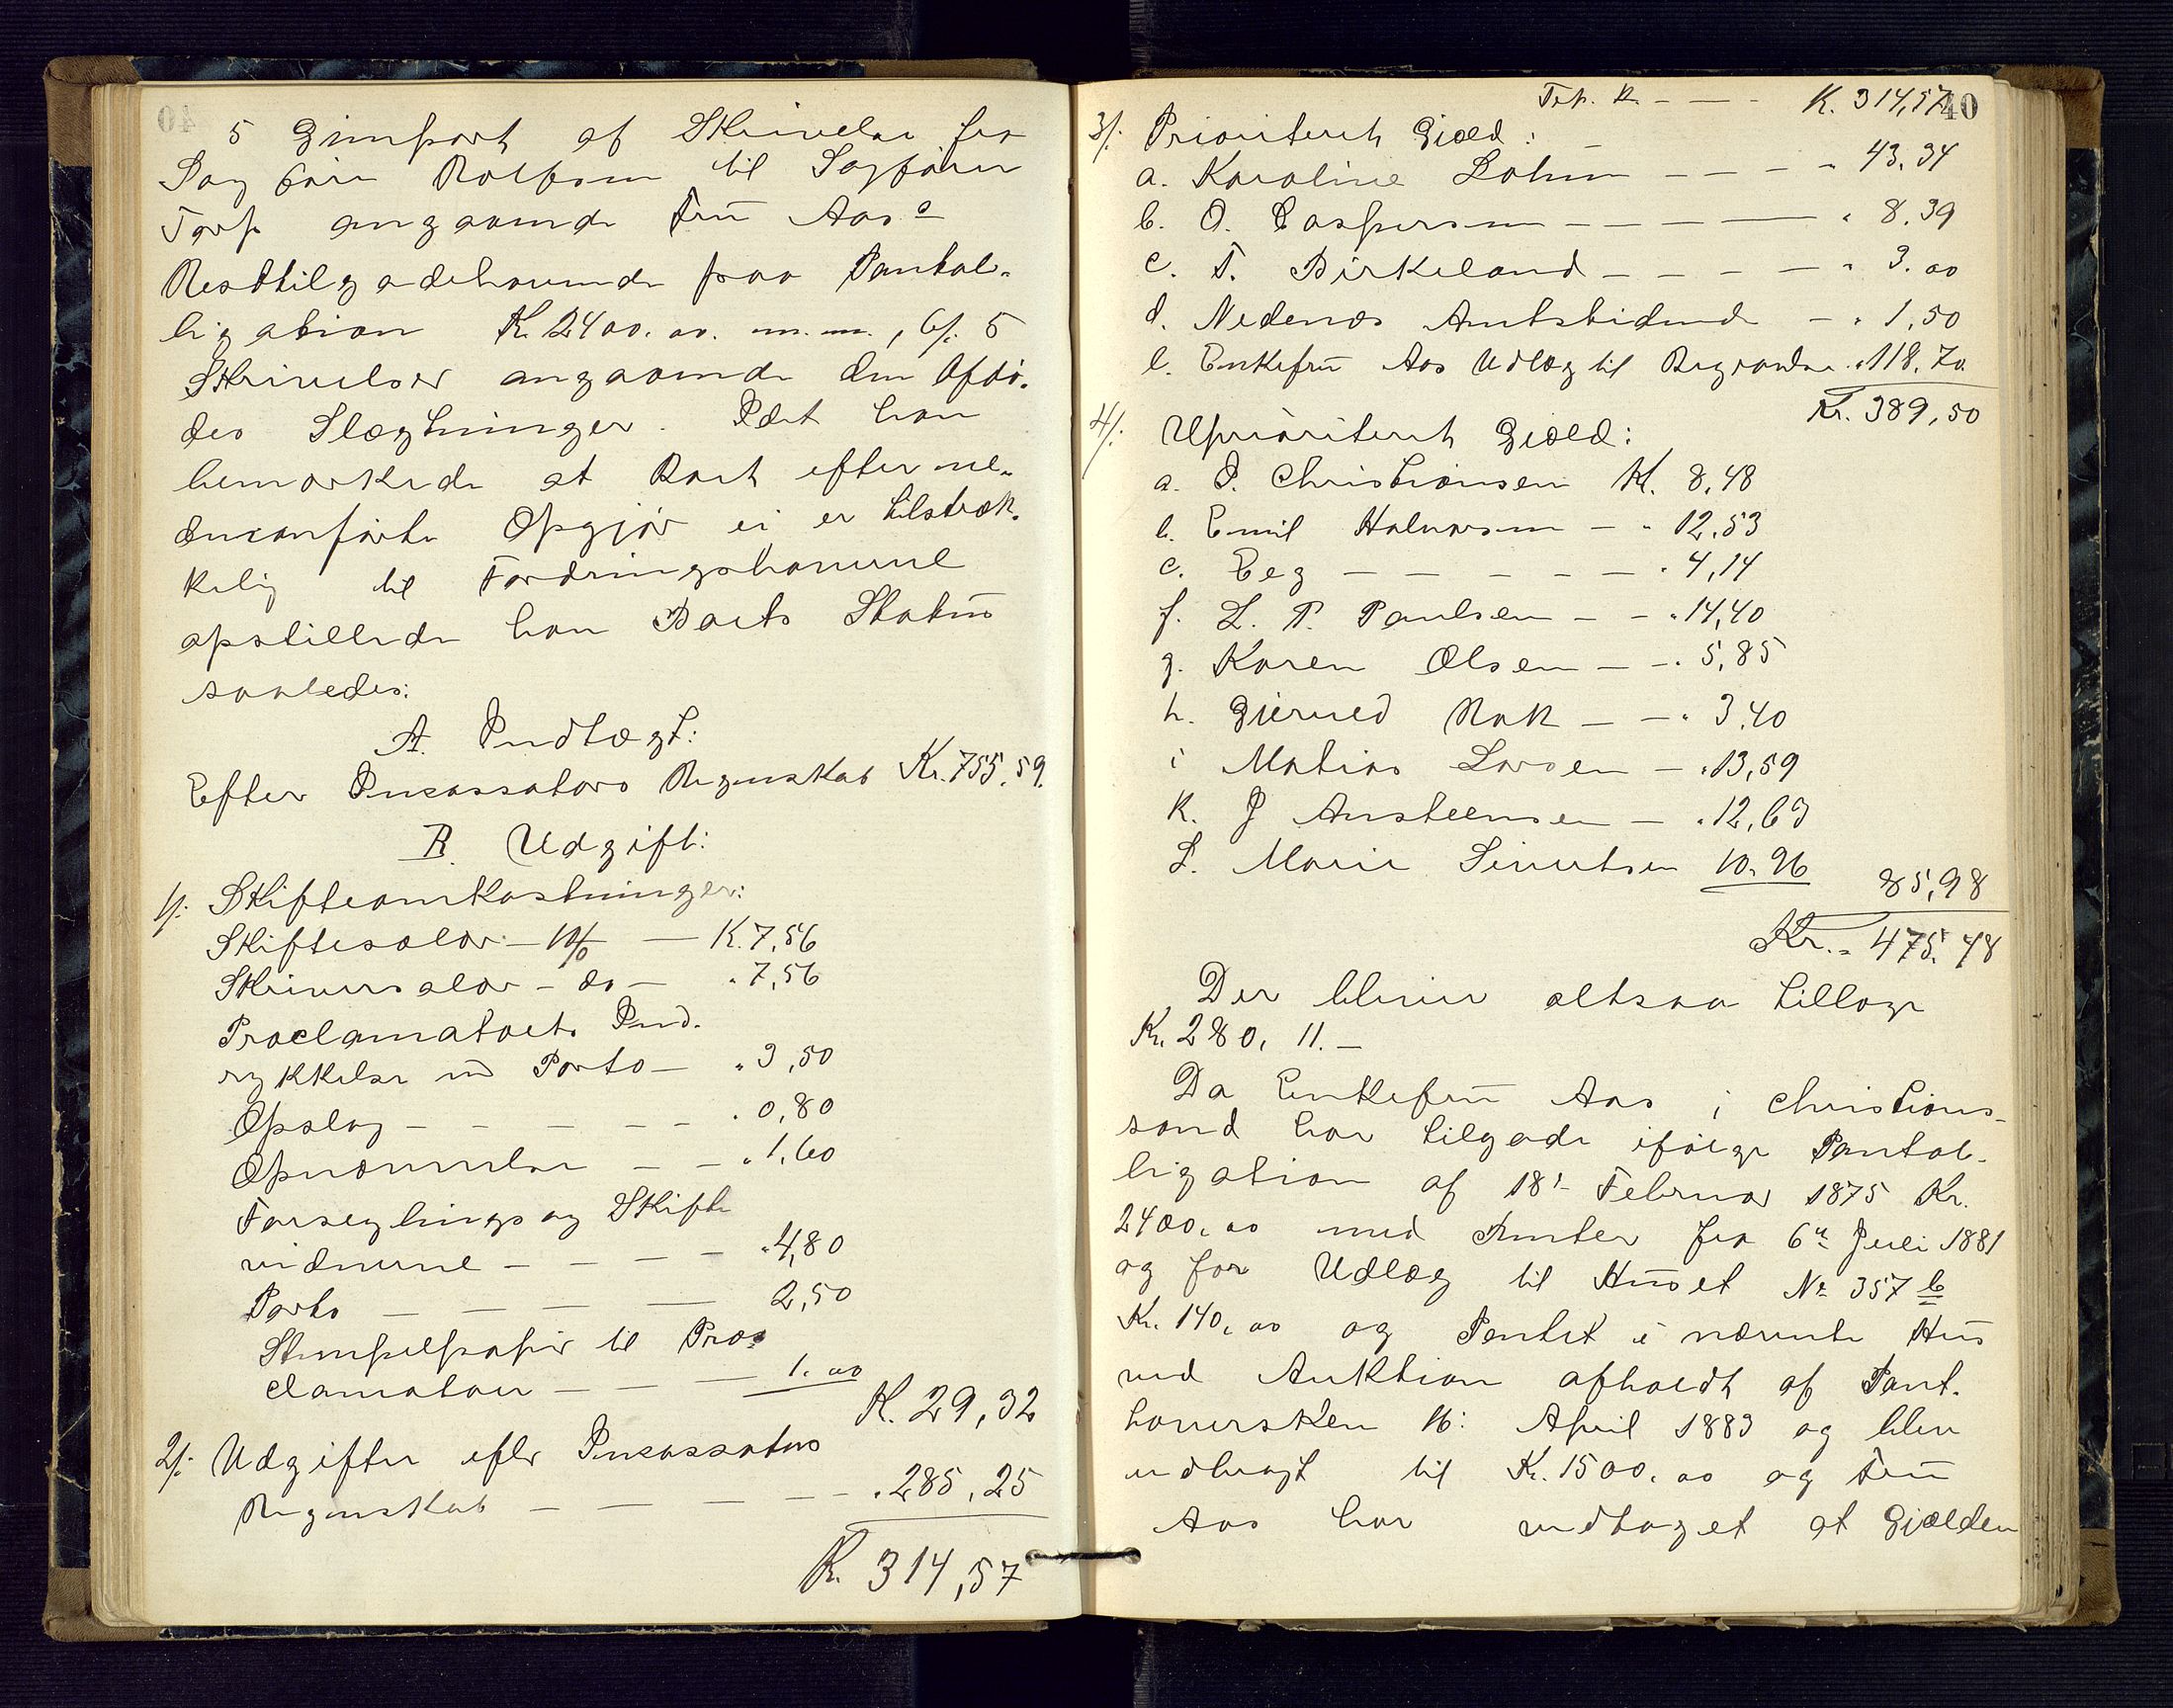 5 Gjenpart af Skrivelse fra
Sagfører Rolfsen til Sagfører
Torp angaaende Fru Aas's
Resttilgodehavende paa Pantob-
ligation K. 2400.00. m.m., 6/: 5
Skrivelser angaaende den Afdø-
des Slægtninger. Idet han
bemærkede at Boet efter ne-
denanførte Opgjør ei er tilstræk-
kelig til Fordringshaverne
opstillede han Boets Status
saaledes:
A. Indtægt:
Efter Incassators Regnskab Kr. 755.59.
B. Udgift:
1/: Skifteomkostninger:
Skiftesalær 1% — K. 7,56
Skriversalær - do - " 7,56
Proclamatoets Ind-
rykkelse m Porto — " 3,50
Opslag — " 0,80
Opnævnelse — " 1,60
Forseglings og Skifte
vidnerne — " 4,80
Porto — 2,50
Stempelpapir til Pro-
clamatoer — 1.00
K. 29,32
2/: Udgifter efter Incassators
Regnskab — " 285,25
K. 314,57
40
Trp. K. - — - K. 314,57
3/: Prioriteret Gjæld:
a. Karoline Lohne — " 43,34
b. O. Caspersen — " 8,39
c. T. Birkeland — " 3.00
d. Nedenæs Amtstidende — " 1,50
e. Enkefru Aas Udlæg til Begravelse " 118.70
Kr. 389,50
4/: Uprioriteret Gjæld:
a. P. Christiansen K. 8,48
b. Emil Halvorsen — " 12,53
c. Eeg — " 4,14
f. L. P. Paulsen — " 14,40
g. Karen Olsen — " 5,85
h. Gjerved Rok — " 3,40
i Matias Larsen — " 13,59
k. J Austeensen — " 12,63
L. Marie Sivertsen 10.96
85,98
Kr. " 475.48
Der bliver altsaa tillags
Kr. 280, 11. —
Da Enkefru Aas i Christians-
sand har tilgode ifølge Pantob-
ligation af 18' Februar 1875 Kr.
2400,00 med Renter fra 6te Juli 1881
og for Udlæg til Huset No 357 b
Kr. 140,00 og Pantet i nævnte Hus
ved Auktion afholdt af Pant-
haversken 16: April 1883 og blev
udbragt til Kr. 1500,00 og Fru
Aas har vedtaget at Gjælden